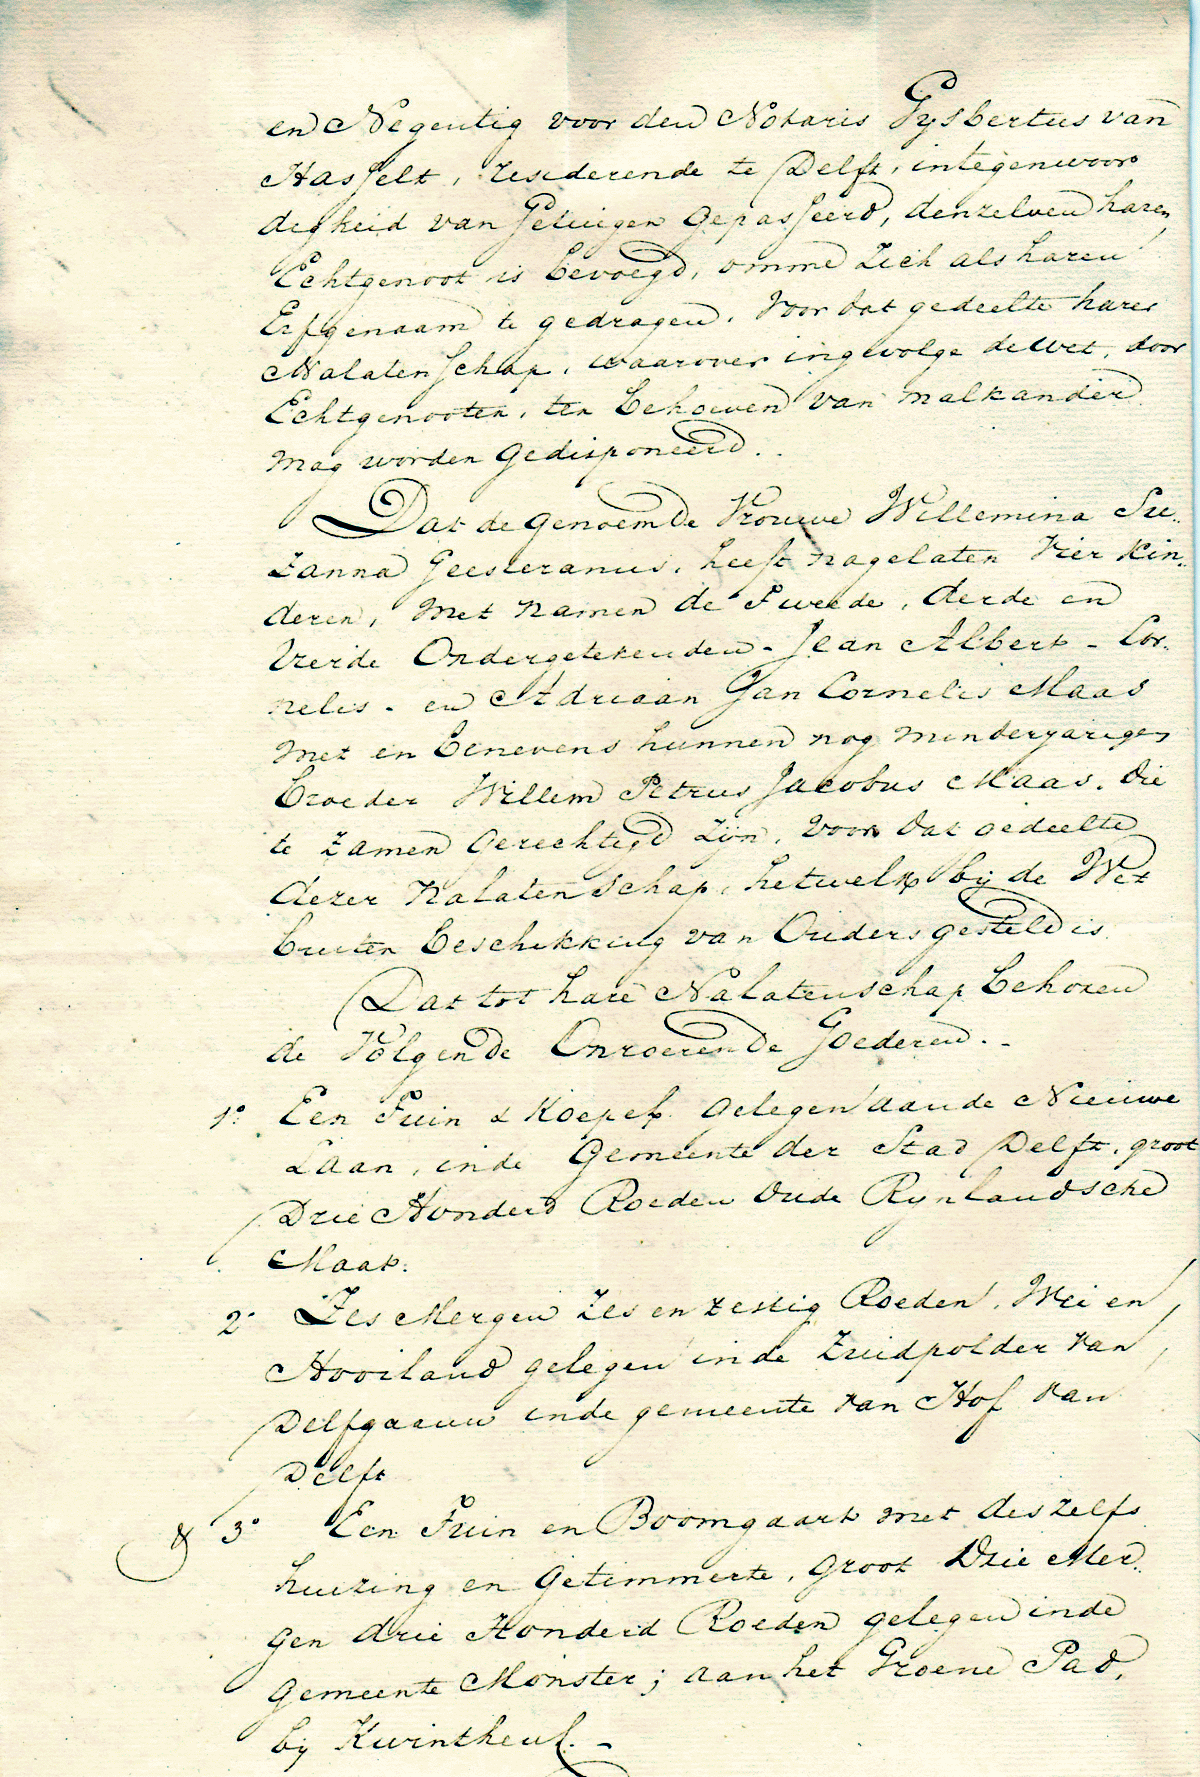 en Negentig voor den Notaris Gysbertus van
Hasselt, residerende te Delft, integenwoor
digheid van Getuigen gepasseerd, denzelven haren
Echtgenoot is bevoegd, omme zich als haren
Erfgenaam te gedragen, voor dat gedeelte harer
Nalatenschap, waarover ingevolge de wet, door
Echtgenooten, ten behoeven van malkander
mag worden gedisponeerd.
Dat de genoemde Vrouwe Willemina Su-
zanna Geesteranus, heeft nagelaten Vier Kin-
deren, met namen de Tweede, derde en
Vierde Ondergetekenden - Jean Albert - Cor-
nelis - en Adriaan Jan Cornelis Maas
met en benevens hunnen nog minderjarigen
broeder Willem Petrus Jacobus Maas, die
te zamen gerechtigd zijn, voor dat gedeelte
dezer Nalatenschap, hetwelk bij de Wet
buiten beschikking van Ouders gesteld is
Dat tot hare Nalatenschap behoren
de Volgende Onroerende Goederen. -
1o. Een Tuin & Koepel gelegen aan de Nieuwe
Laan, in de Gemeente der Stad Delft, groot
Drie Honderd Roeden Oude Rynlandsche
Maat.
2o Zes Mergen Zes en zestig Roeden, Wei en
Hooiland gelegen in de Zuidpolder van
Delfgaauw in de gemeente van Hof van
Delft
& 3o Een Tuin en Boomgaart met deszelfs
huizing en Getimmerte, groot Drie Mer-
gen drie Honderd Roeden gelegen in de
Gemeente Monster; aan het Groene Pad,
bij Kwintheul. -